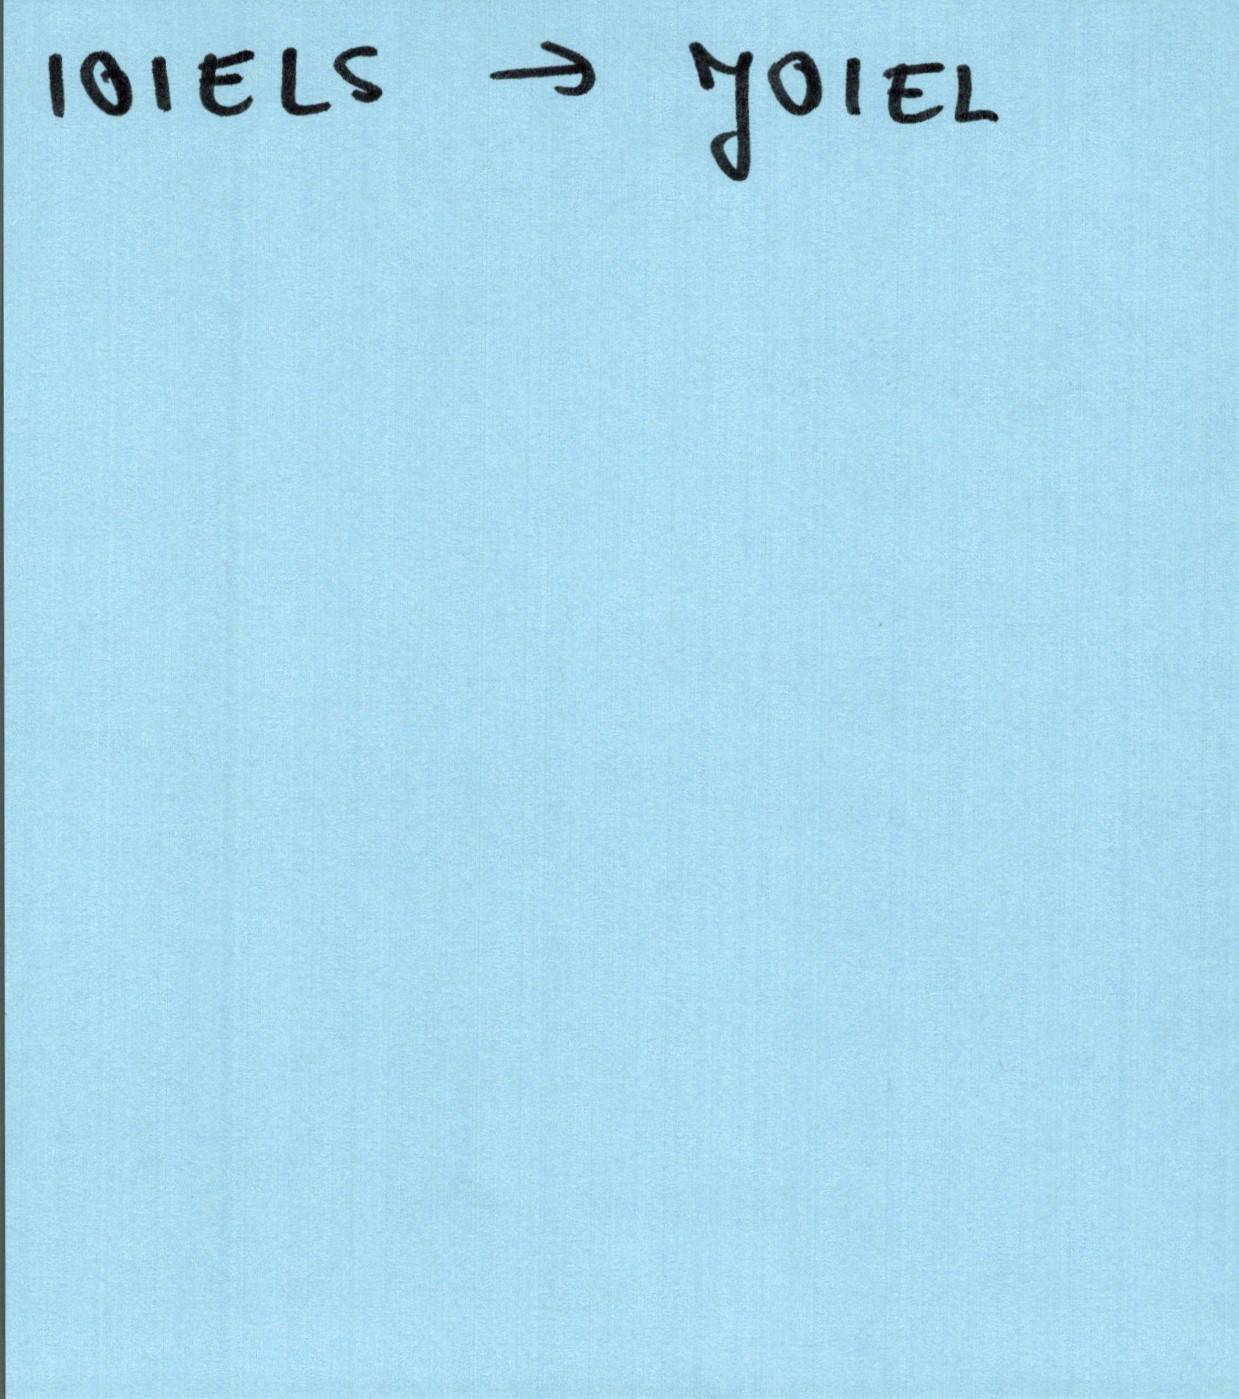 IOIELS → JOIEL